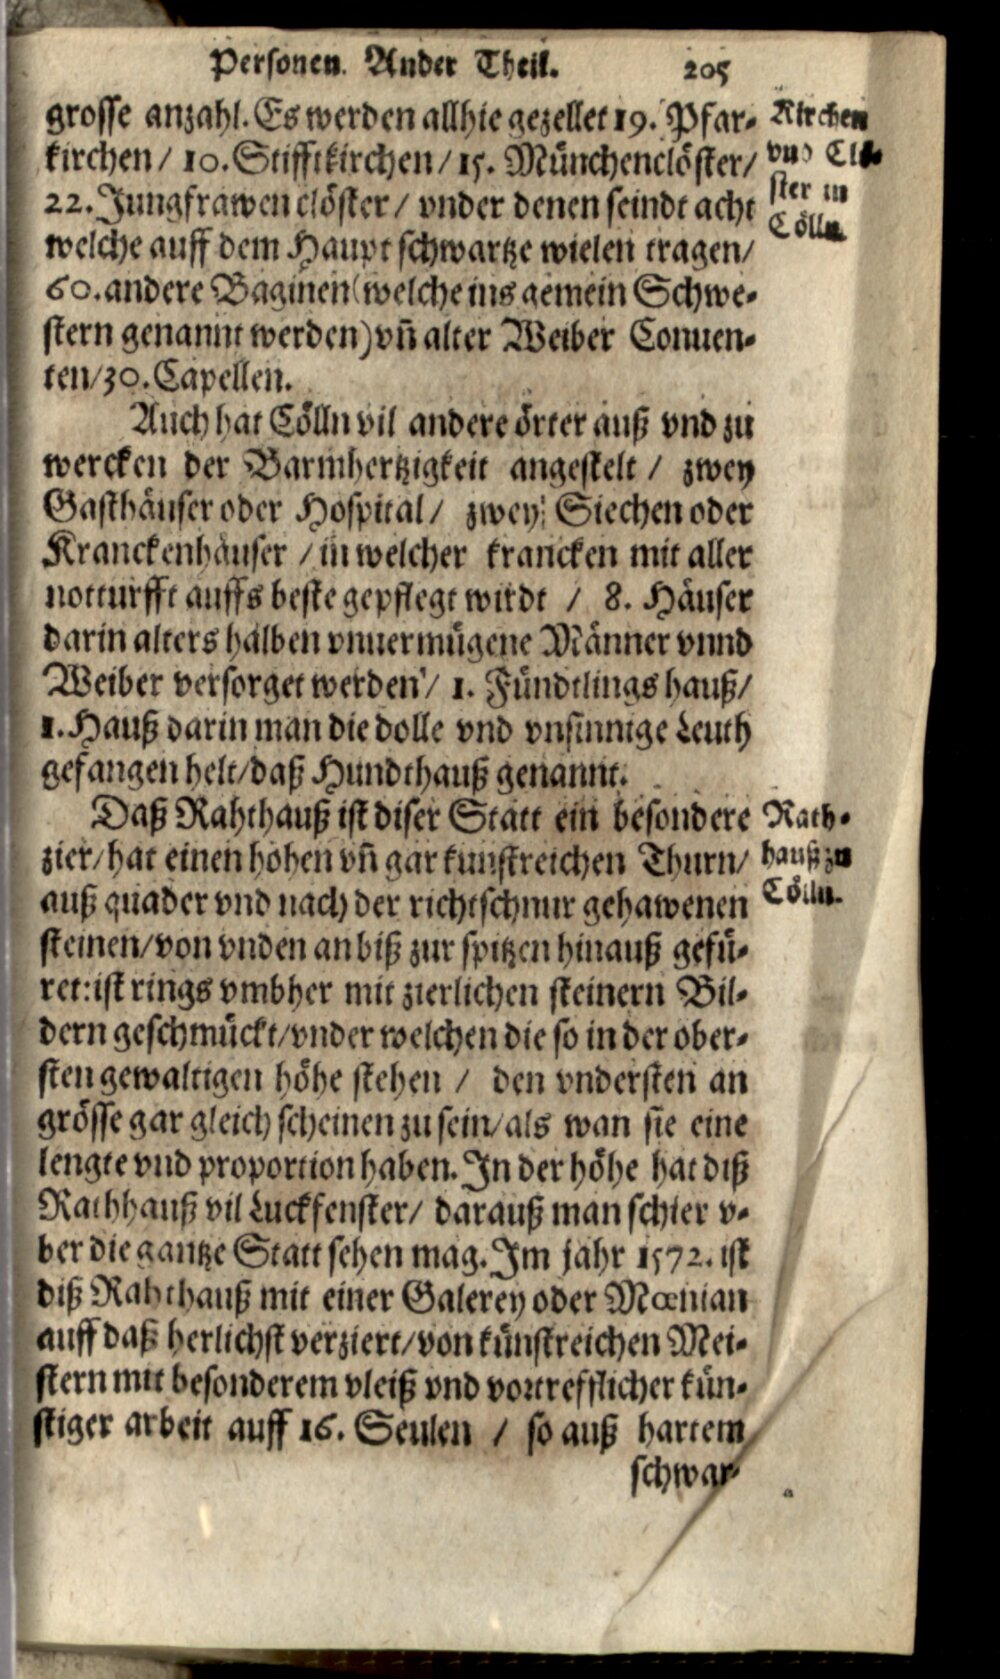 Personen. Ander Theil. 205
grosse anzahl. Es werden allhie gezellet 19. Pfar-
kirchen / 10. Stifftkirchen / 15. Münchenclöster /
22. Jungfrawenclöster / vnder denen seindt acht
welche auff dem Haupt schwartze wielen tragen /
60. andere Baginen (welche ins gemein Schwe-
stern genannt werden) vñ alter Weiber Conuen-
ten / 30. Capellen.
Kirchen
vnd Clö-
ster in
Cölln.
Auch hat Cölln vil andere örter auß vnd zu
wercken der Barmhertzigkeit angestelt / zwey
Gasthäuser oder Hospital / zwey Siechen oder
Kranckenhäuser / in welcher krancken mit aller
notturfft auffs beste gepflegt wirdt / 8. Häuser
darin alters halben vnuermügene Männer vnnd
Weiber versorget werden / 1. Fündtlings hauß /
1. Hauß darin man die dolle vnd vnsinnige Leuth
gefangen helt / daß Hundthauß genannt.
Daß Rahthauß ist diser Statt ein besondere
zier / hat einen hohen vñ gar kunstreichen Thurn /
auß quader vnd nach der richtschnur gehawenen
steinen / von vnden an biß zur spitzen hinauß gefü-
ret: ist rings vmbher mit zierlichen steinern Bil-
dern geschmückt / vnder welchen die so in der ober-
sten gewaltigen höhe stehen / den vndersten an
grösse gar gleich scheinen zu sein / als wan sie eine
lengte vnd proportion haben. In der höhe hat diß
Rathhauß vil Luckfenster / darauß man schier v-
ber die gantze Statt sehen mag. Im jahr 1572. ist
diß Rahthauß mit einer Galerey oder Mœnian
auff daß herlichst verziert / von künstreichen Mei-
stern mit besonderem vleiß vnd vortrefflicher kün-
stiger arbeit auff 16. Seulen / so auß hartem
schwar-
Rath-
hauß zu
Cölln.